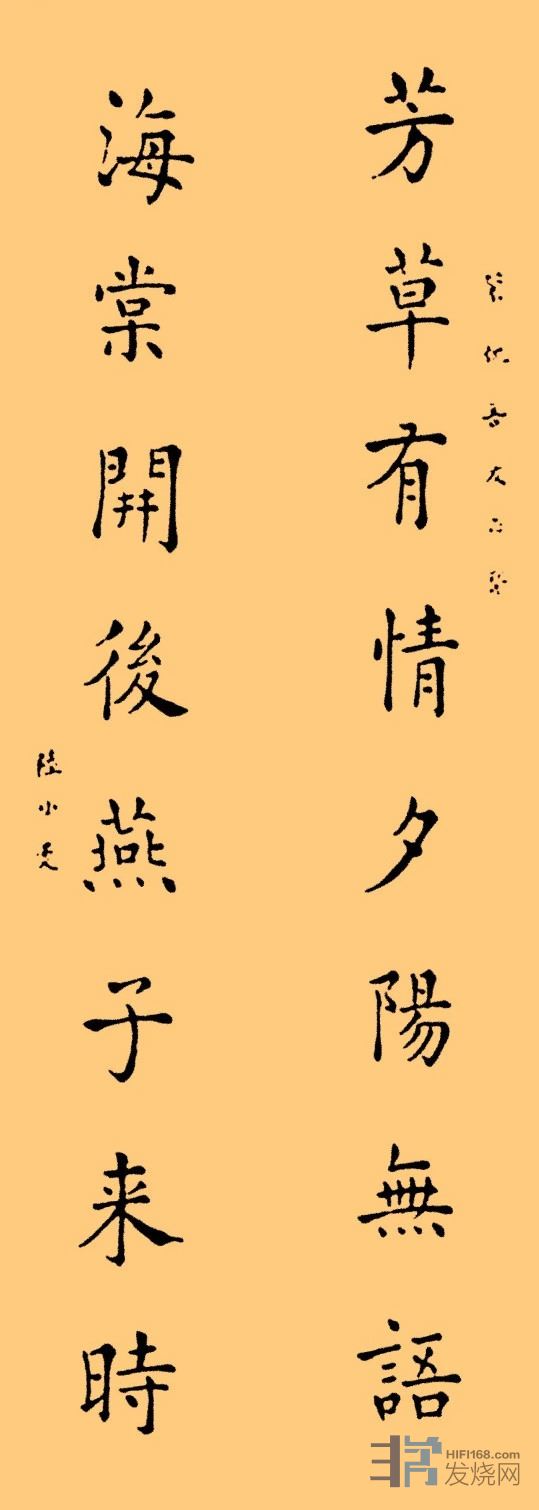 芳草有情夕陽無語
海棠開後燕子来時
陸小曼
HIFI168.com
发烧网